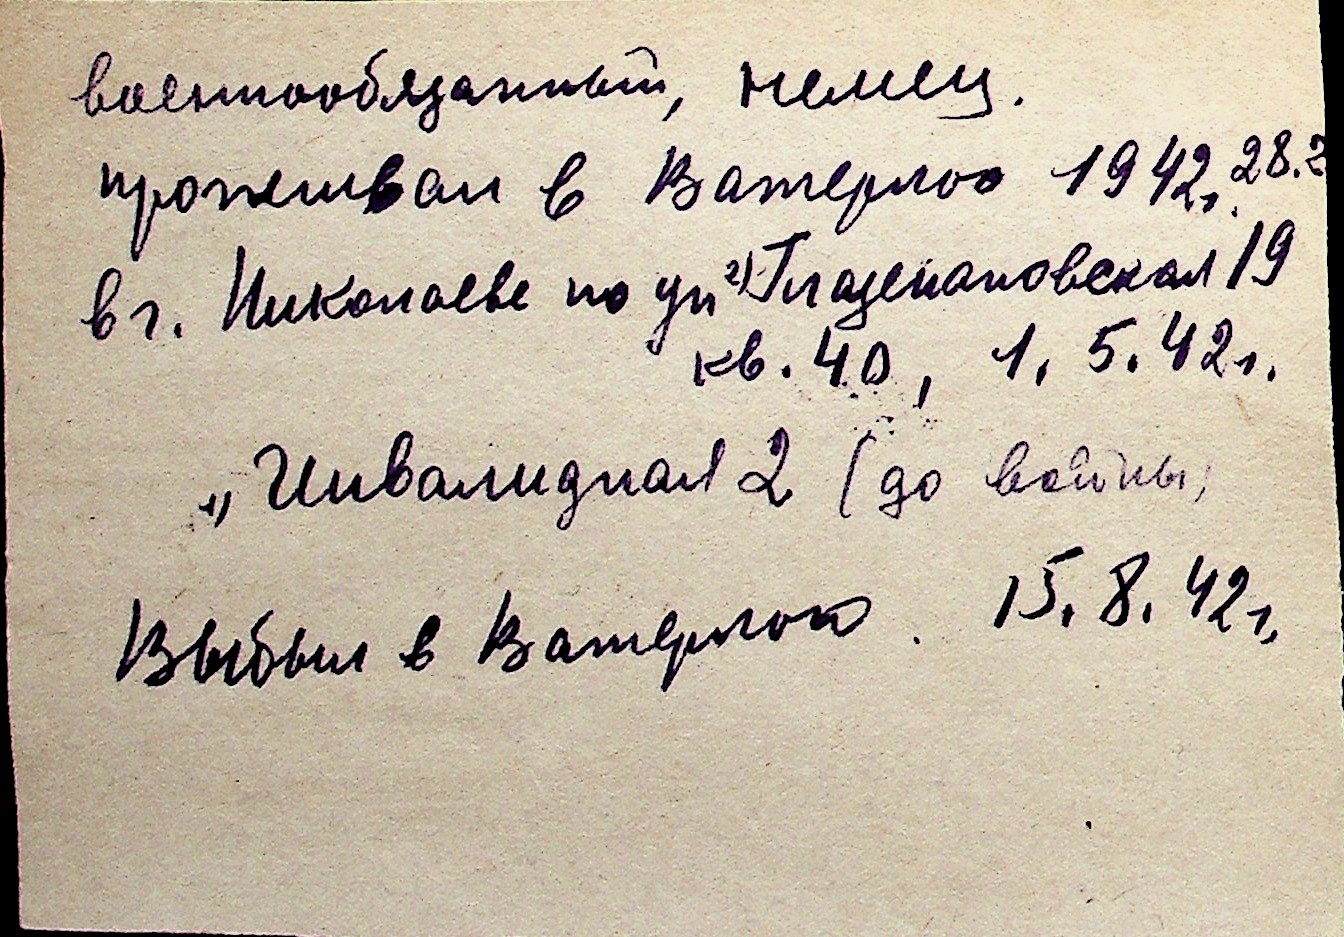 военнообязанный, немец.
проживал в Ватерлоо 1942г. 28.2
в г. Николаеве по ул 2) Глазенаповская 19
кв. 40, 1. 5. 42г.
„ Инвалидная 2 (до войны)
Выбыл в Ватерлоо. 15. 8. 42г.